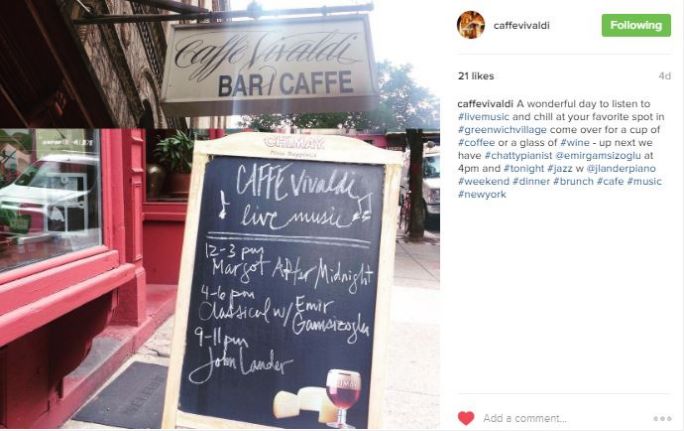 Caffe Vivaldi
BAR / CAFFE
CHIMAY
CAFFE Vivaldi
live music
12-3 pm
Margot After Midnight
4-6 pm
Classical w/ Emir
Gamsizoglu
9-11 pm
John Lander
CHIMAY
caffevivaldi
Following
21 likes
4d
caffevivaldi A wonderful day to listen to
#livemusic and chill at your favorite spot in
#greenwichvillage come over for a cup of
#coffee or a glass of #wine - up next we
have #chattypianist @emirgamsizoglu at
4pm and #tonight #jazz w @jlanderpiano
#weekend #dinner #brunch #cafe #music
#newyork
Add a comment...